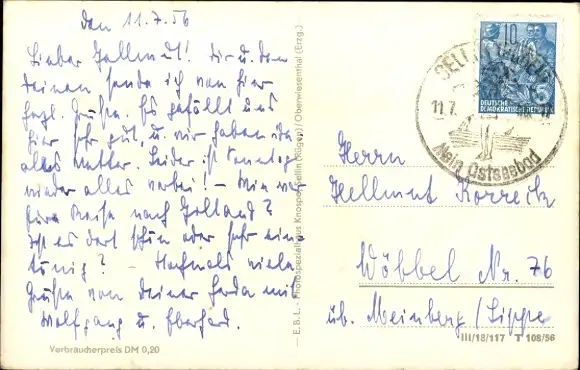 den 11.7.56
Lieber Hellmut! Dir u. den
Deinen sende ich von hier
herzl. Grüße. Es gefällt uns
hier sehr gut, u. wir haben
alles Wetter. Leider ist Sonntag
wieder alles vorbei! – Wie war
Eure Reise nach Holland?
Ist es dort schön oder sehr ein-
tönig? – Nochmals viele
Grüße von Deiner Gerda mit
Wolfgang u. Eberhard.
Verbraucherpreis DM 0,20
E.B.L. - Photospezialhaus Knospe, Sellin (Rügen) / Oberwiesenthal (Erzg.)
10
DEUTSCHE
DEMOKRATISCHE REPUBLIK
SELLIN
11.7.
Mein Ostseebad
Herrn
Hellmut Korreck
Wöbbel Nr. 76
üb. Meinberg/Lippe
III/18/117 T 108/56